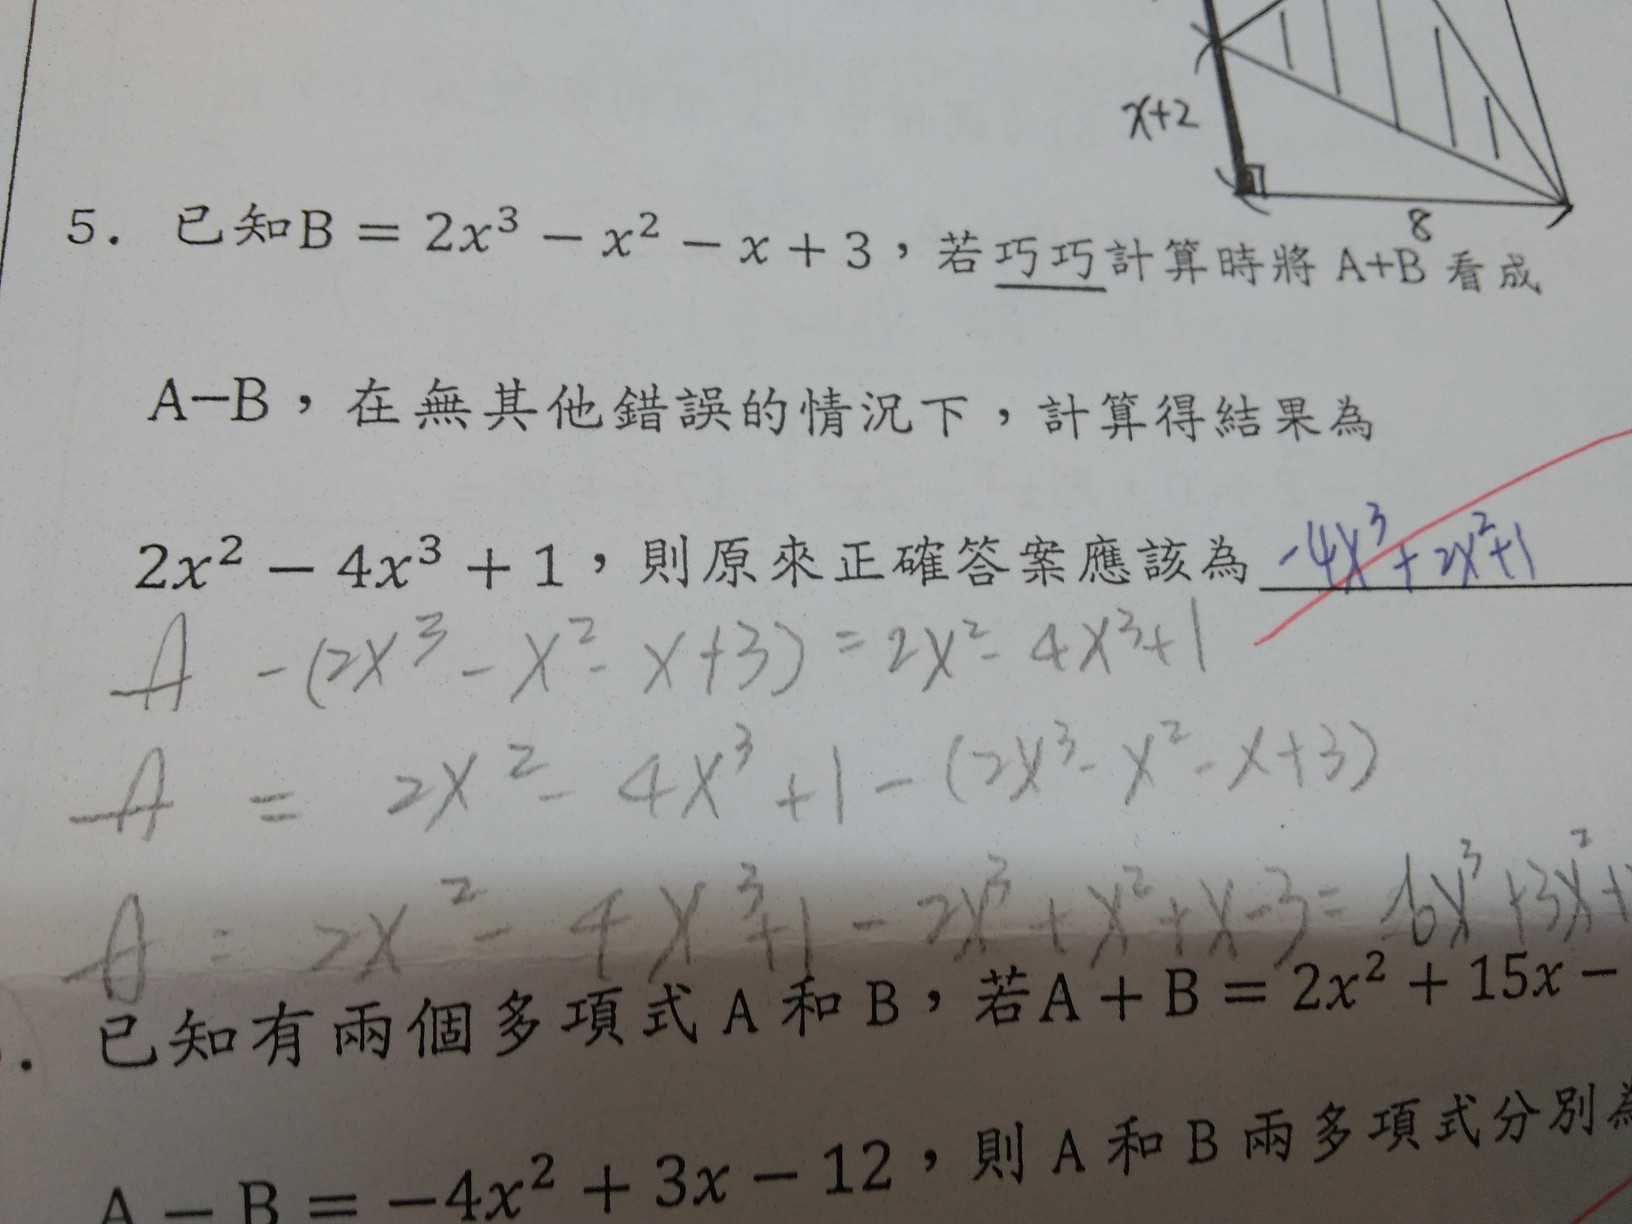 x+2
8
5. 已知B = 2x³ − x² − x + 3，若巧巧計算時將 A+B 看成
A−B，在無其他錯誤的情況下，計算得結果為
2x² − 4x³ + 1，則原來正確答案應該為 -4x³+2x²+1
A -(2x³-x²-x+3)=2x²-4x³+1
A = 2x²-4x³+1-(2x³-x²-x+3)
A = 2x²-4x³+1-2x³+x²+x-3= 6x³+3x²+
. 已知有兩個多項式 A 和 B，若A + B = 2x² + 15x −
A − B = −4x² + 3x − 12，則 A 和 B 兩多項式分別為